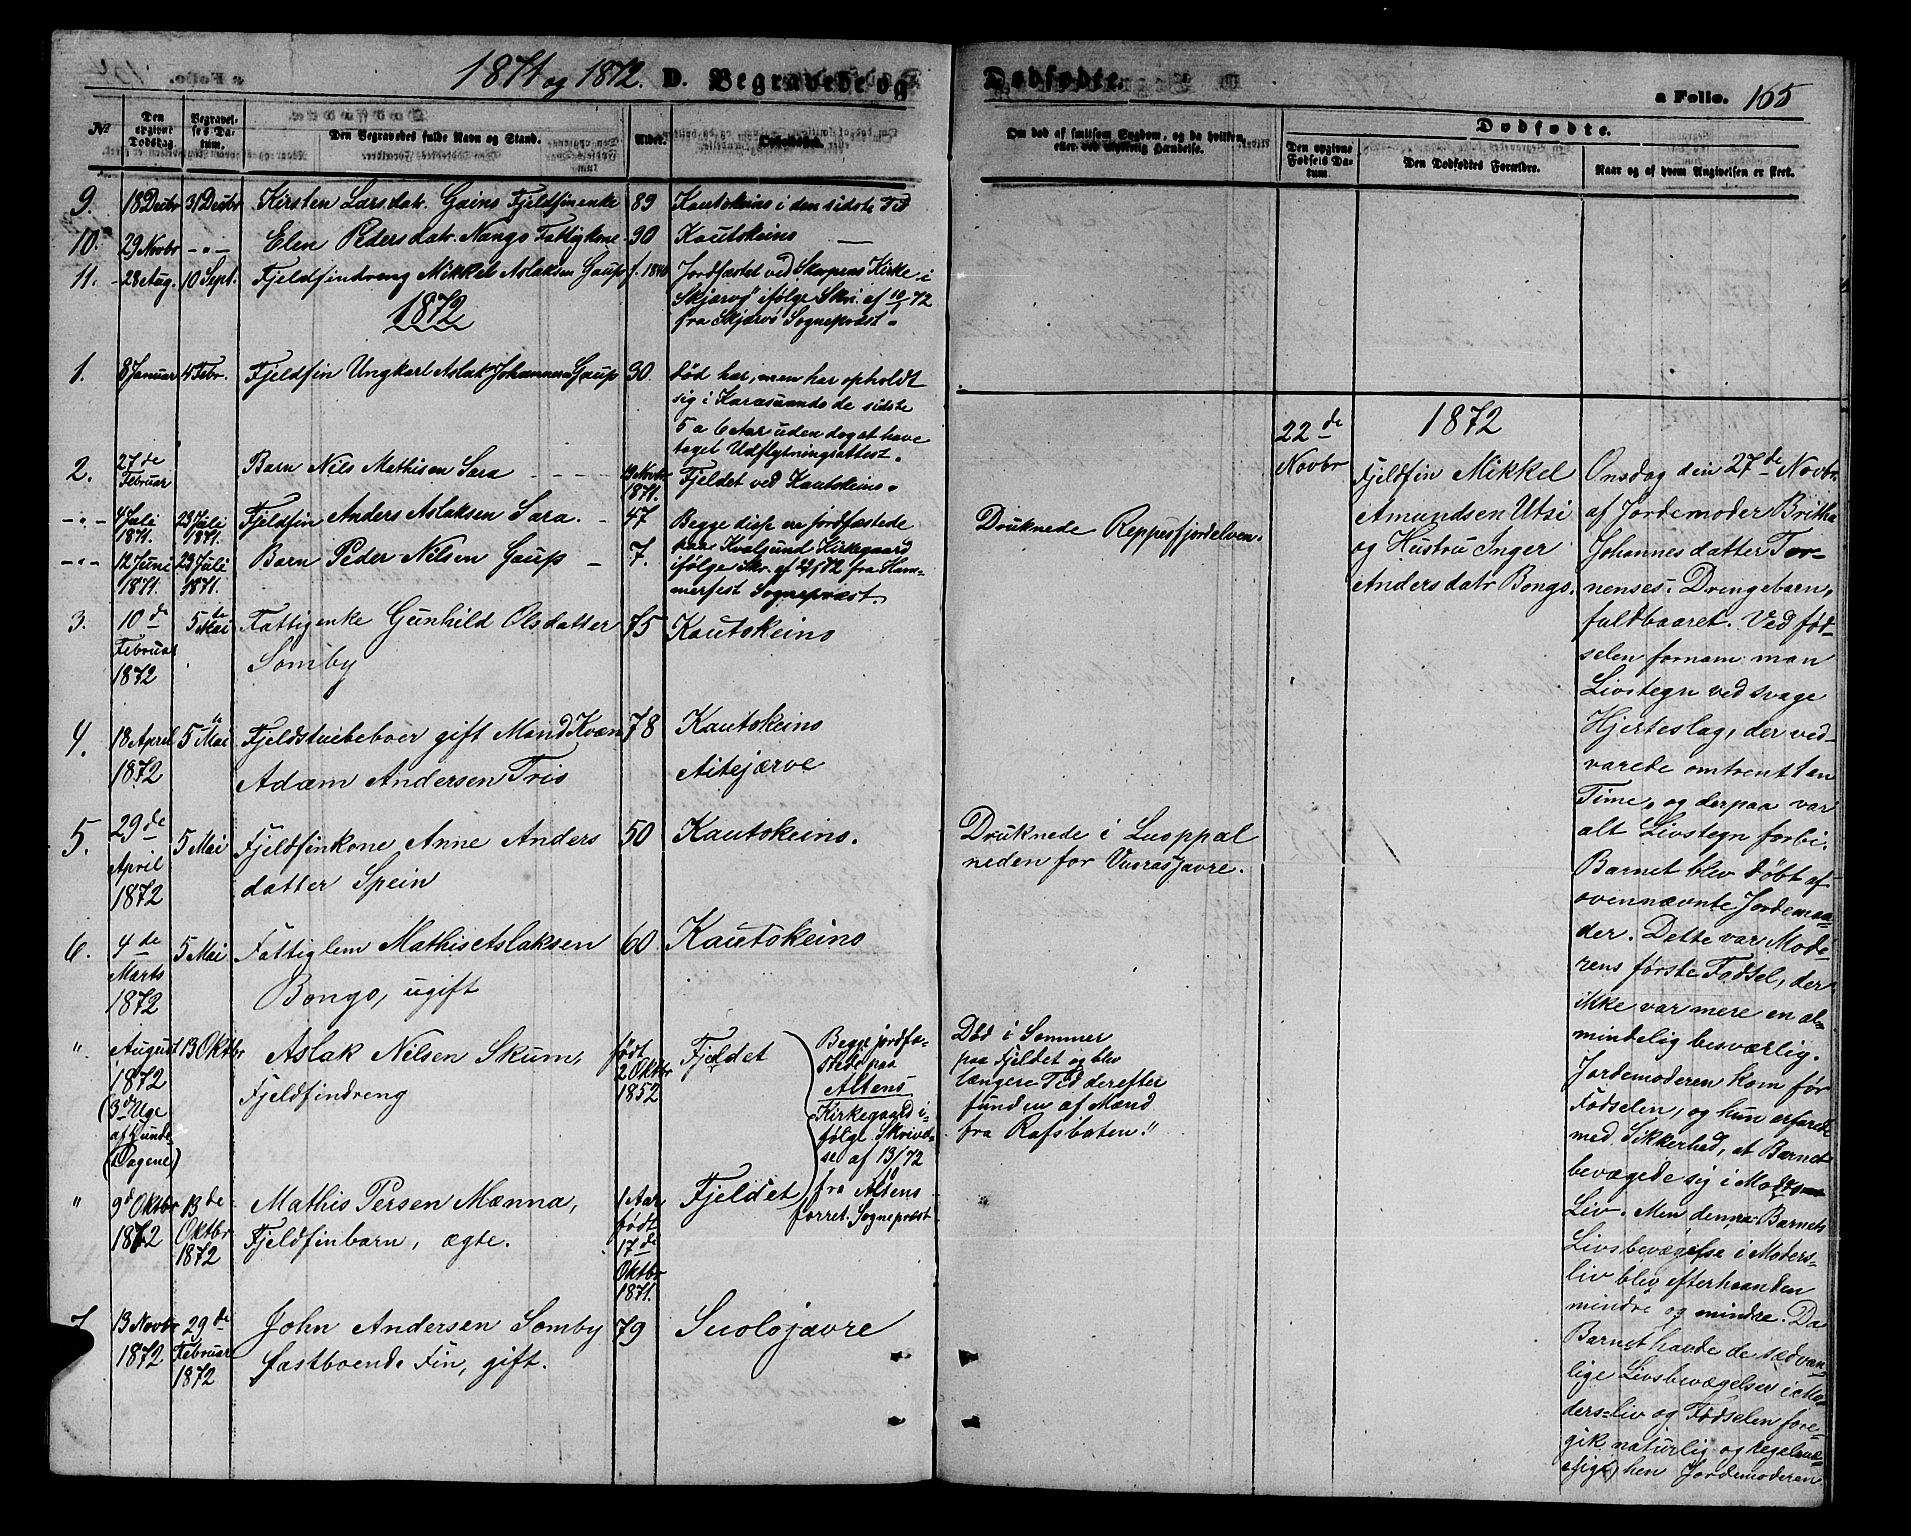 1871 og 1872. D. Begravede og
Dødfødte.
a Folio. 165
No
Den opgivne Dødsdag.
Begravelses Datum.
Den Begravedes fulde Navn og Stand.
Alder.
Opholdssted.
Om død af smitsom Sygdom, og da hvilken,
eller ved ulykkelig Hændelse.
Dødfødte.
Den opgivne Fødsels Datum.
Den Dødfødtes Forældre.
Naar og af hvem Angivelsen er skeet.
9. 18 Decbr 31 Decbr Kirsten Larsdatr. Gaino Fjeldfinenke 89 Kautokeino i den sidste Tid
10. 29 Novbr -"- Elen Pedersdatr. Nango Fattigkone 90 Kautokeino
11. 28 Aug. 10 Sept. Fjeldfindreng Mikkel Aslaksen Gaup f. 1840 Jordfæstet ved Skerpens Kirke i
Skjærvø ifølge Skri. af 10/72
fra Skjærvø Sognepræst.
1872
1. 8 Januar 4 Febr. Fjeldfin Ungkarl Aslak Johannesen Gaup 30. død her, men har opholdt
sig i Karasuando de sidste
5 a 6 Aar uden dog at have
taget Udflytningsattest.
2. 27de Februar Barn Nils Mathisen Sara 19 Novbr 1871. Fjeldet ved Kautokeino.
-"- 4 Juli 1871. 23 Juli 1871. Fjeldfin Anders Aslaksen Sara. 47 Begge disse ere jordfæstede
-"- 12 Juni 1871. 23 Juli 1871. Barn Peder Nilsen Gaup 7. paa Kvalsund Kirkegaard
ifølge Skr. af 22/1 72 fra Hammerfest
Sognepræst.
Druknede Reppesfjordelven.
3. 10de Februar 1872 5te Mai Fattigenke Gunhild Olsdatter
Somby
75 Kautokeino
4. 18 April 1872 5te Mai Fjeldstuebeboer gift Mand Kvæn
Adam Andersen Triis
78 Kautokeino
Aitejærve
5. 29de April 1872 5 Mai Fjeldfinkone Anne Anders
datter Spein
50 Kautokeino.
Druknede i Luoppal
neden for Vuorasjavre.
6. 4de Marts 1872 5 Mai Fattiglem Mathis Aslaksen
Bongo, ugift
60 Kautokeino
" August 1872 (3de Uge af Hunde Dagene) 13 Oktbr Aslak Nilsen Skum,
Fjeldfindreng
født 2 Oktbr 1852 Fjeldet
Begge jordfæstede
paa
Altens
Kirkegaard ifølge
Skrivelse
af 13/ 72
fra Altens
forret. Sognepræst
Død i Sommer
paa Fjeldet og blev
længere Tid derefter
funden af Mænd
fra Rafsbøten."
" 9d Oktbr 1872 13de Oktbr 1872 Mathis Persen Mænna,
Fjeldfinbarn, ægte.
1 Aar født 17de Oktbr 1871. Fjeldet
7. 13 Novbr 1872 29de Februar 1872 John Andersen Somby
fastboende Fin, gift.
79 Suolojavre
22de Novbr
1872
Fjeldfin Mikkel
Amundsen Utsi
og Hustru Inger
Andersdatr Bongo.
Onsdag den 27de Novbr
af Jordemoder Britha
Johannesdatter Tornenses.
Drengebarn,
fuldbaaret. Ved fødselen
fornam man
Livstegn ved svage
Hjerteslag, der vedvarede
omtrent 1 en
Time, og derpaa var
alt Livstegn forbi.
Barnet blev døbt af
ovennævnte Jordemoder.
Dette var Moderens
første Fødsel, der
ikke var mere en almindelig
besværlig.
Jordemoderen kom før
Fødselen, og hun erfarede
med Sikkerhed, at Barnet
bevægede sig i Moders
Liv. Men denne Barnets
Livsbevægelse i Modersliv
blev efterhaanden
mindre og mindre. Da
Barnet havde de sædvanlige
Livsbevægelser i Modersliv
og Fødselen foregik
naturlig og regelmæssigt,
hen Jordemoderen